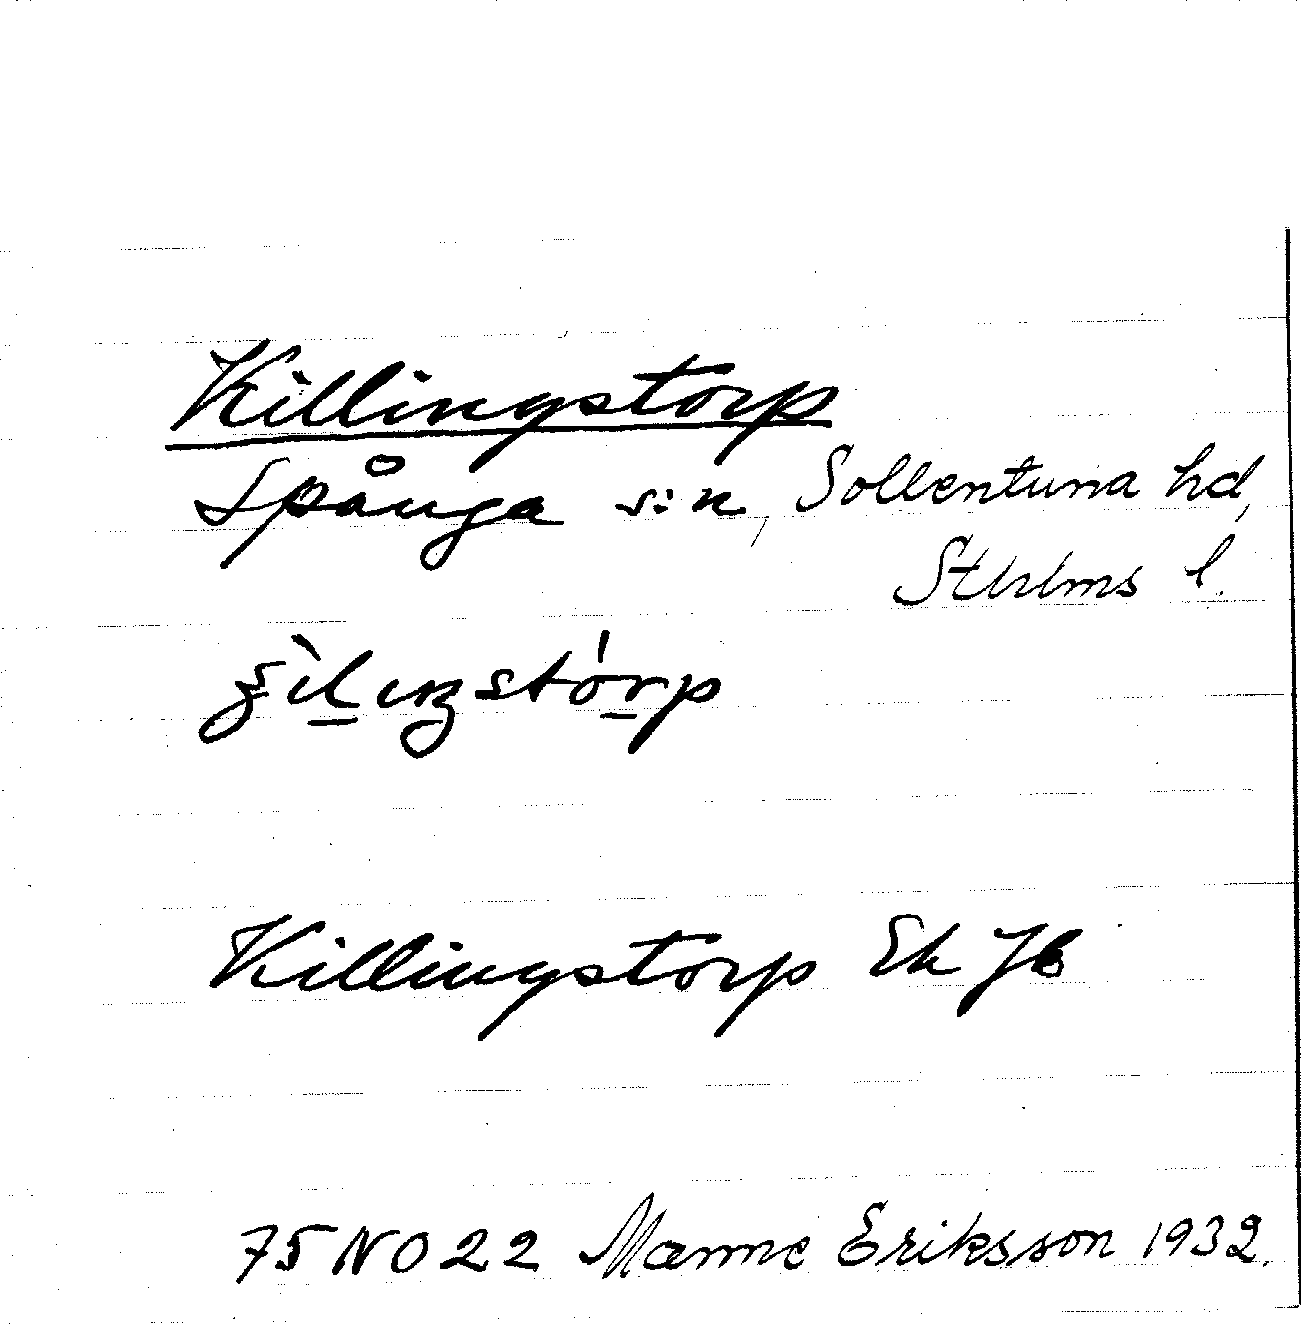 Killingstorp
Spånga s:n, Sollentuna hd,
Sthlms l.
Killingstorp Ek Jb
75 NO 22 Manne Eriksson 1932.